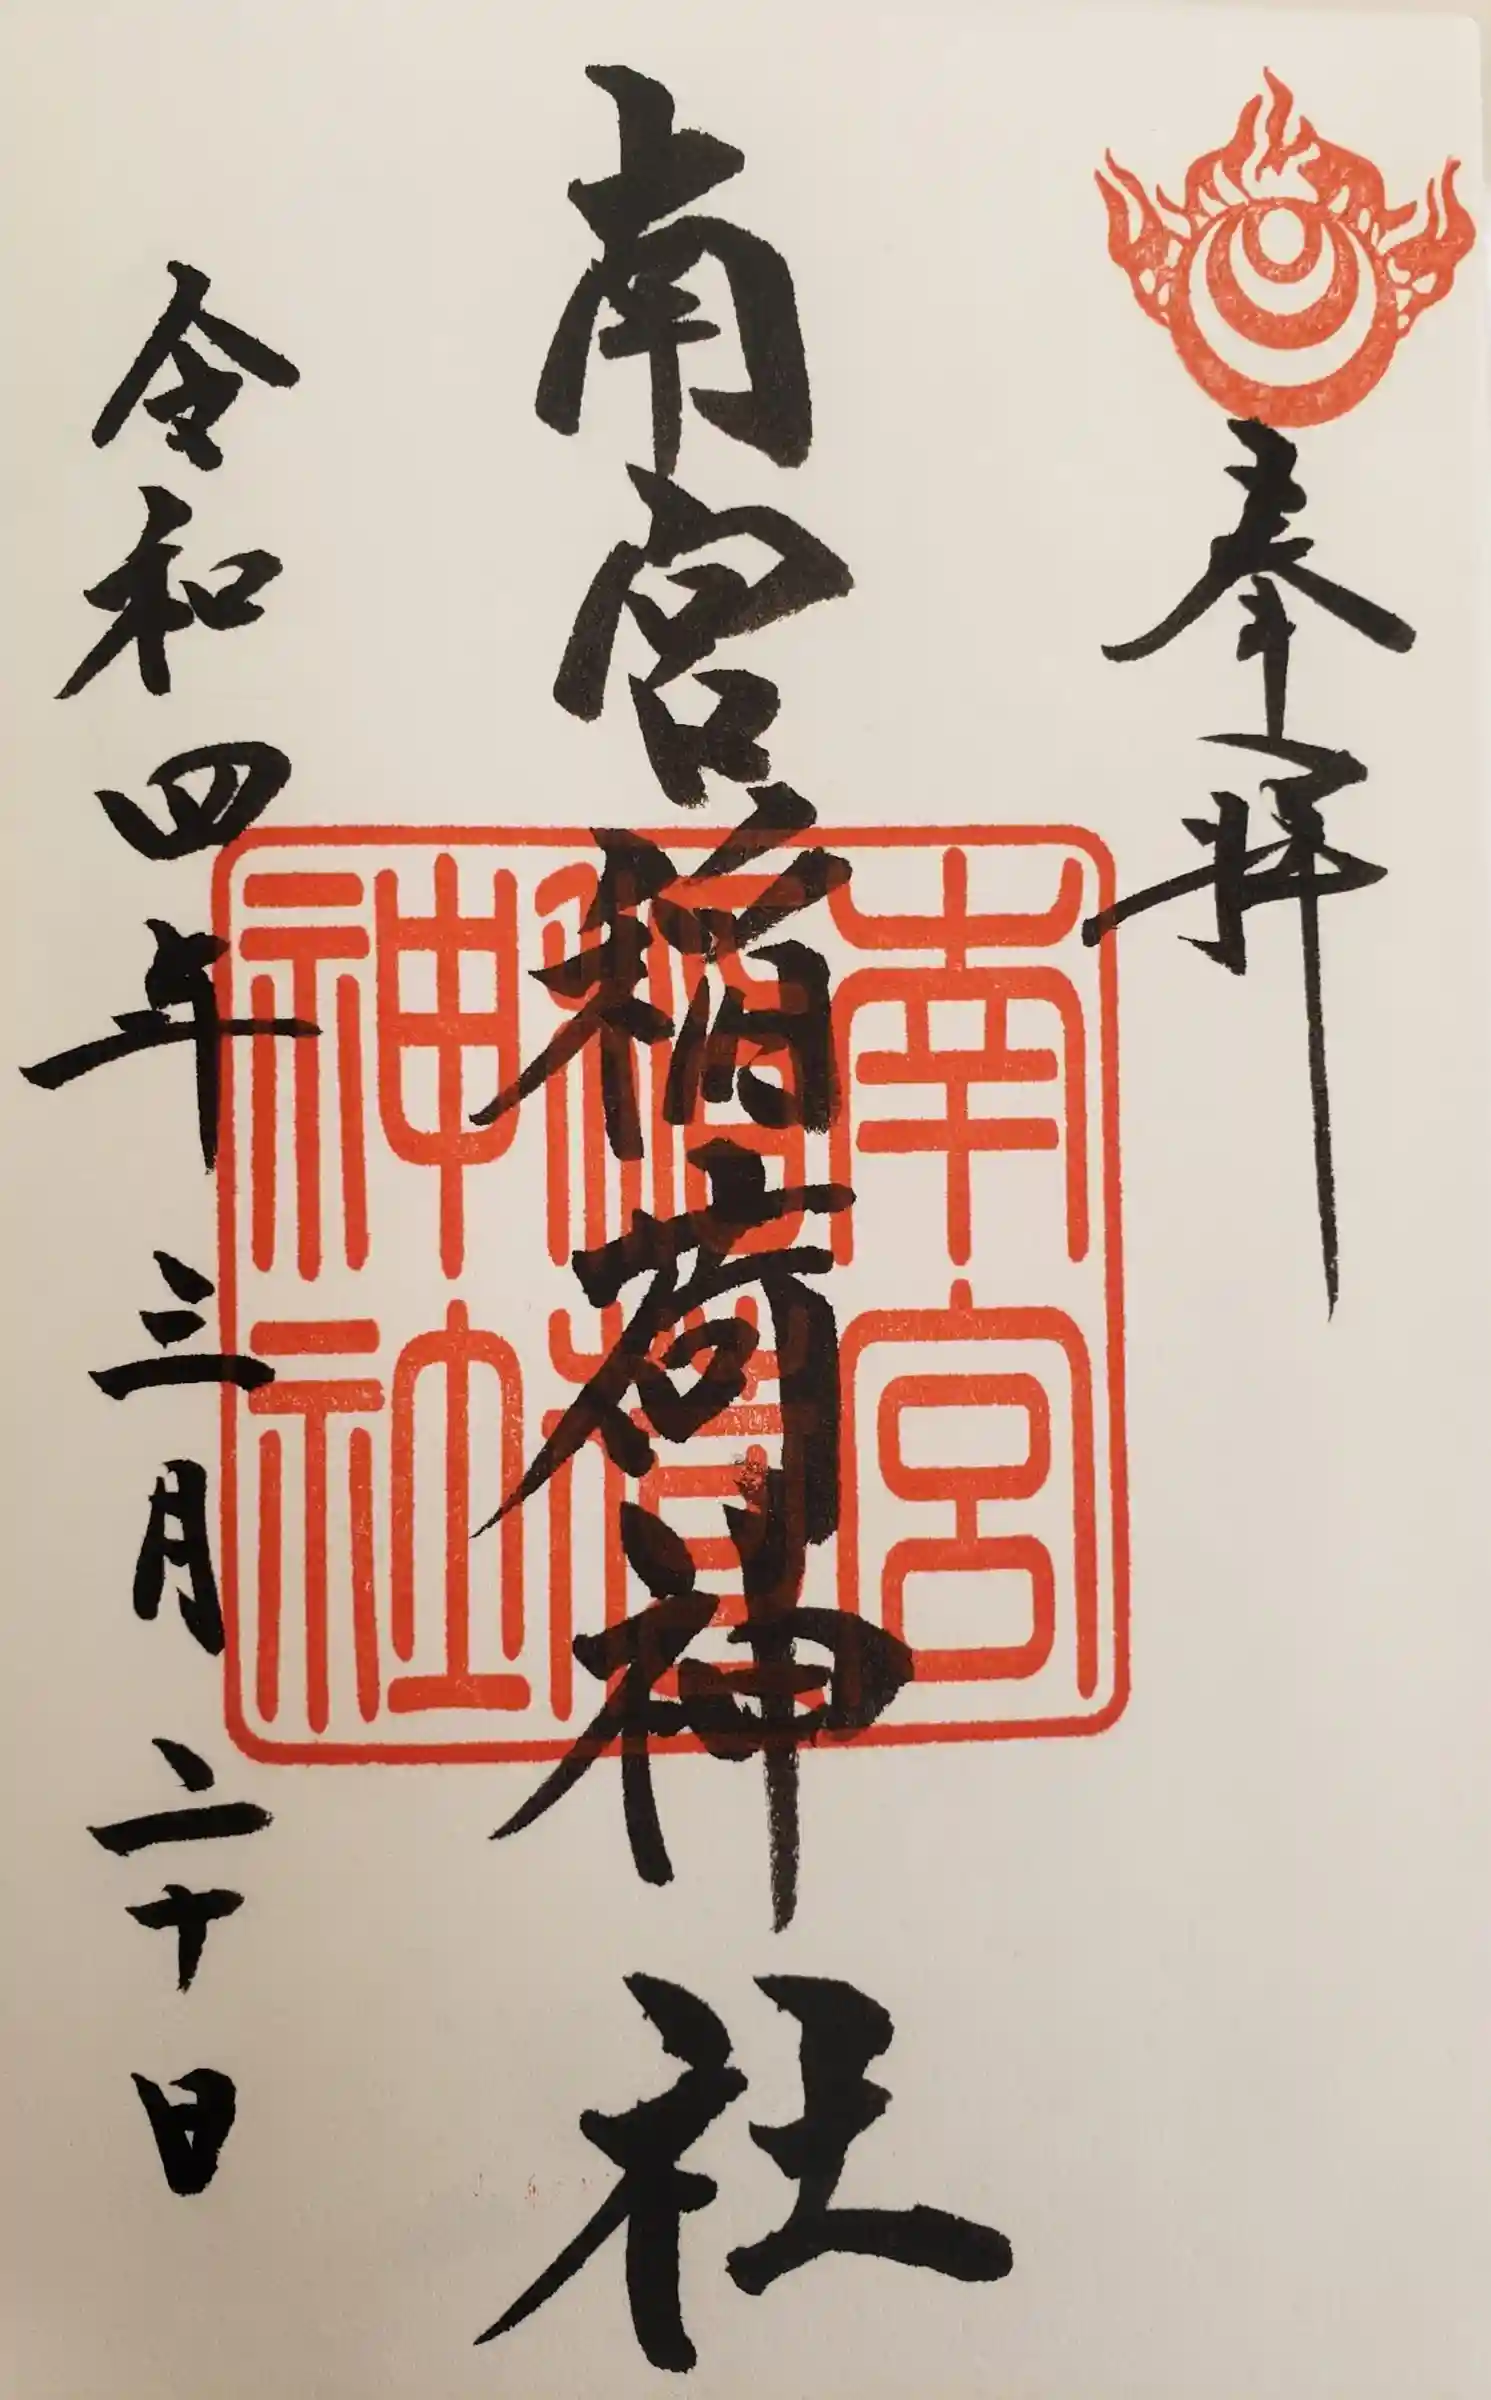 奉拝
南宮稲荷神社
南宮
稲荷
神社
令和四年三月二十日